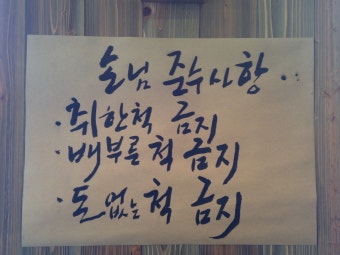 손님 준수사항..
·취한척 금지
·배부른 척 금지
·돈 없는 척 금지